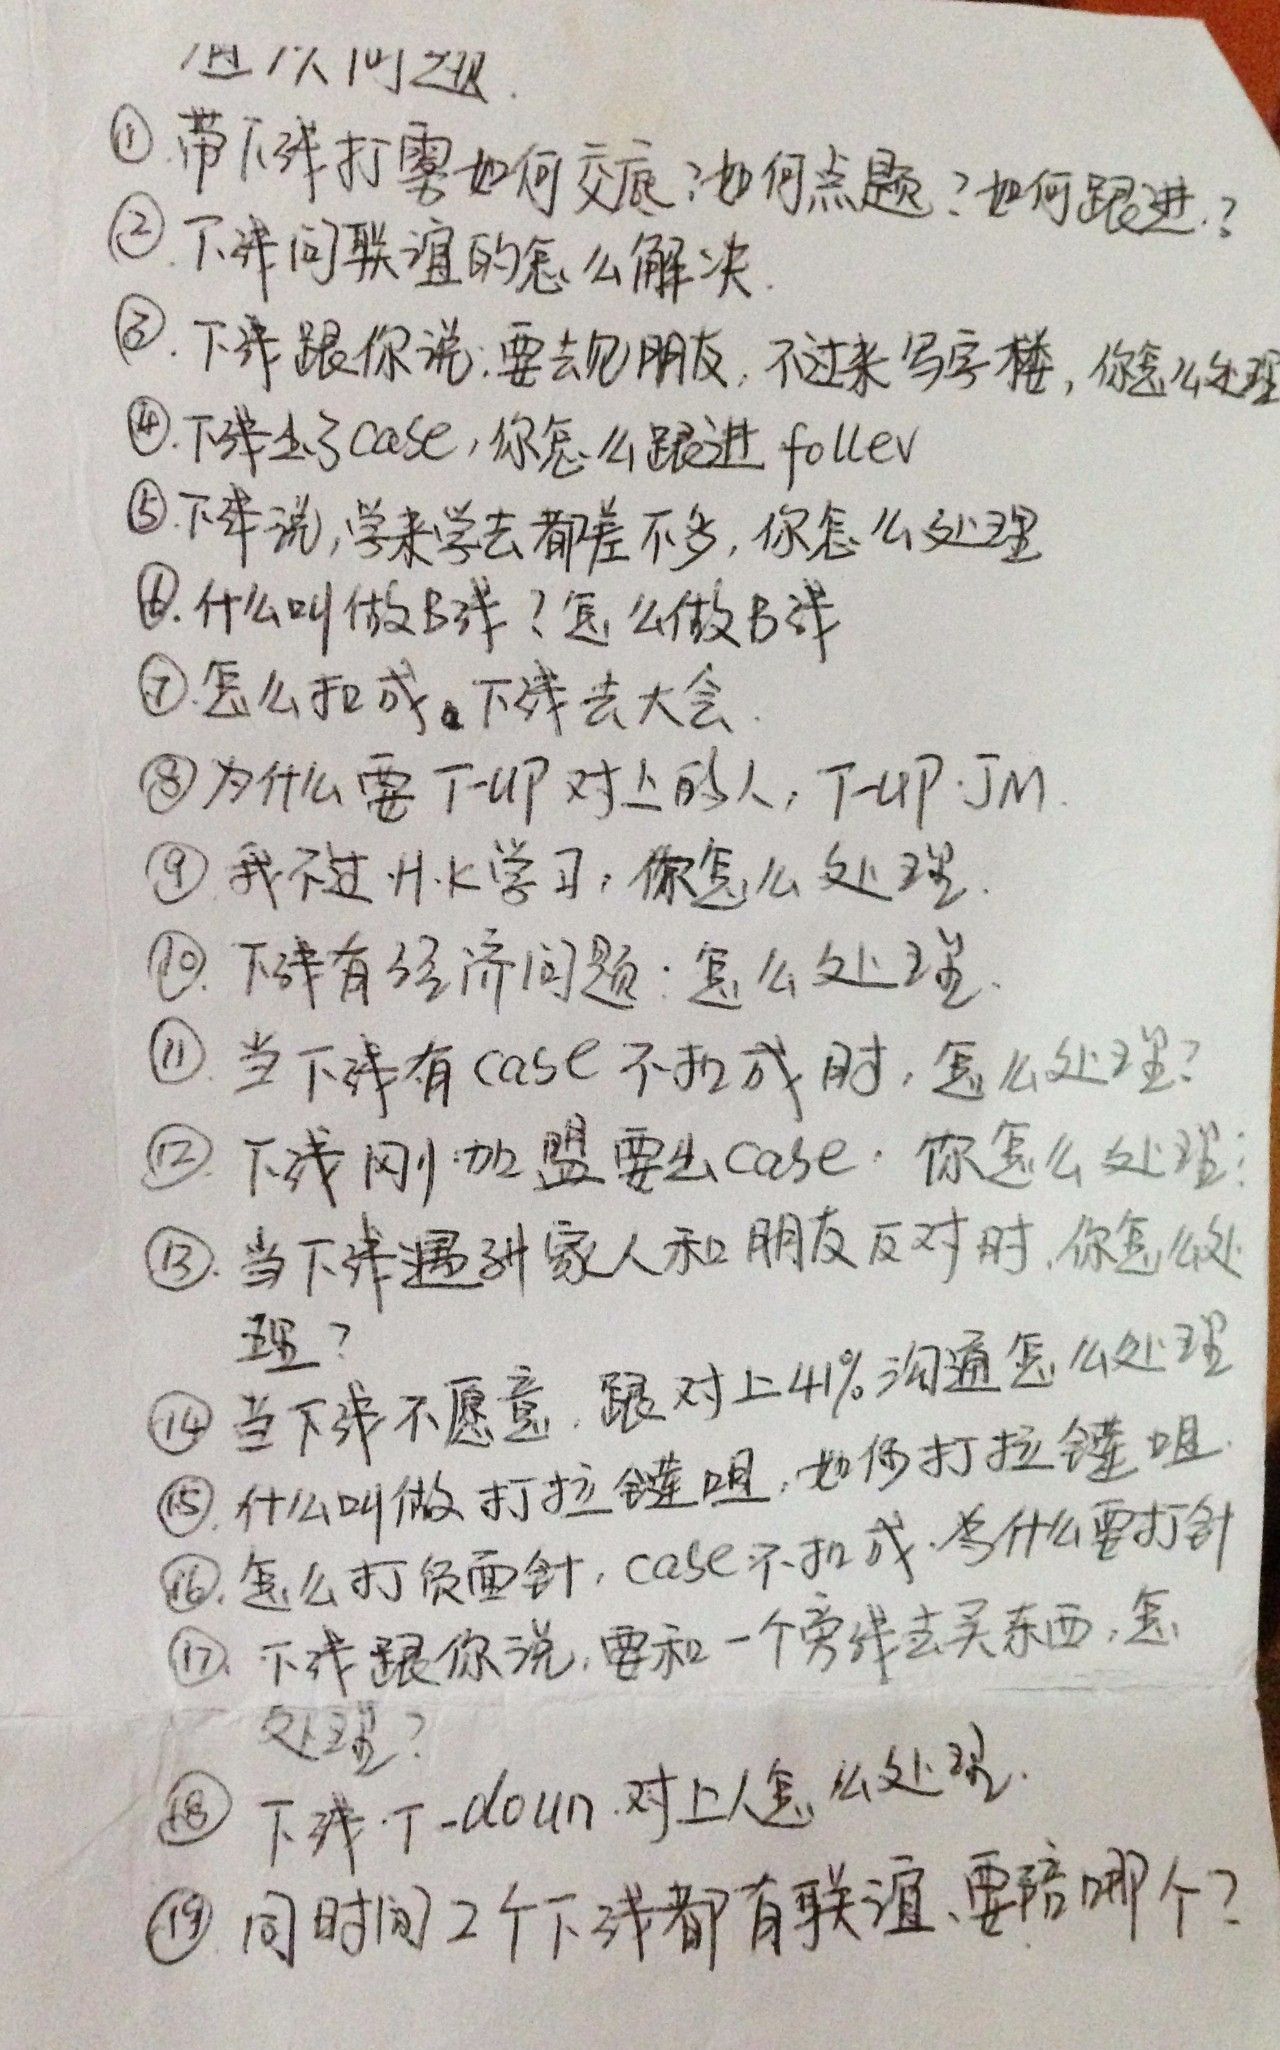 问题.
① 带下线打雾如何交底?如何点题?如何跟进.?
②.下线问联谊的怎么解决.
③.下线跟你说:要去见朋友,不过来写字楼,你怎么处理
④.下线出了case,你怎么跟进 follev
⑤.下线说,学来学去都差不多,你怎么处理
⑥.什么叫做B线?怎么做B线
⑦.怎么扣成下线去大会.
⑧为什么要T-UP对上的人,T-UP.JM.
⑨.我不过.H.K学习,你怎么处理.
⑩.下线有经济问题:怎么处理.
⑪.当下线有case不扣成时,怎么处理?
⑫.下线刚加盟要出case.你怎么处理:
⑬.当下线遇到家人和朋友反对时,你怎么处
理?
⑭ 当下线不愿意.跟对上41%沟通怎么处理
⑮.什么叫做打拉链咀,如何打拉链咀.
⑯.怎么打负面针,case不扣成.为什么要打针
⑰.下线跟你说,要和一个旁线去买东西,怎
处理?
⑱ 下线.T-doun.对上人怎么处理.
⑲ 同时间2个下线都有联谊、要陪哪个?